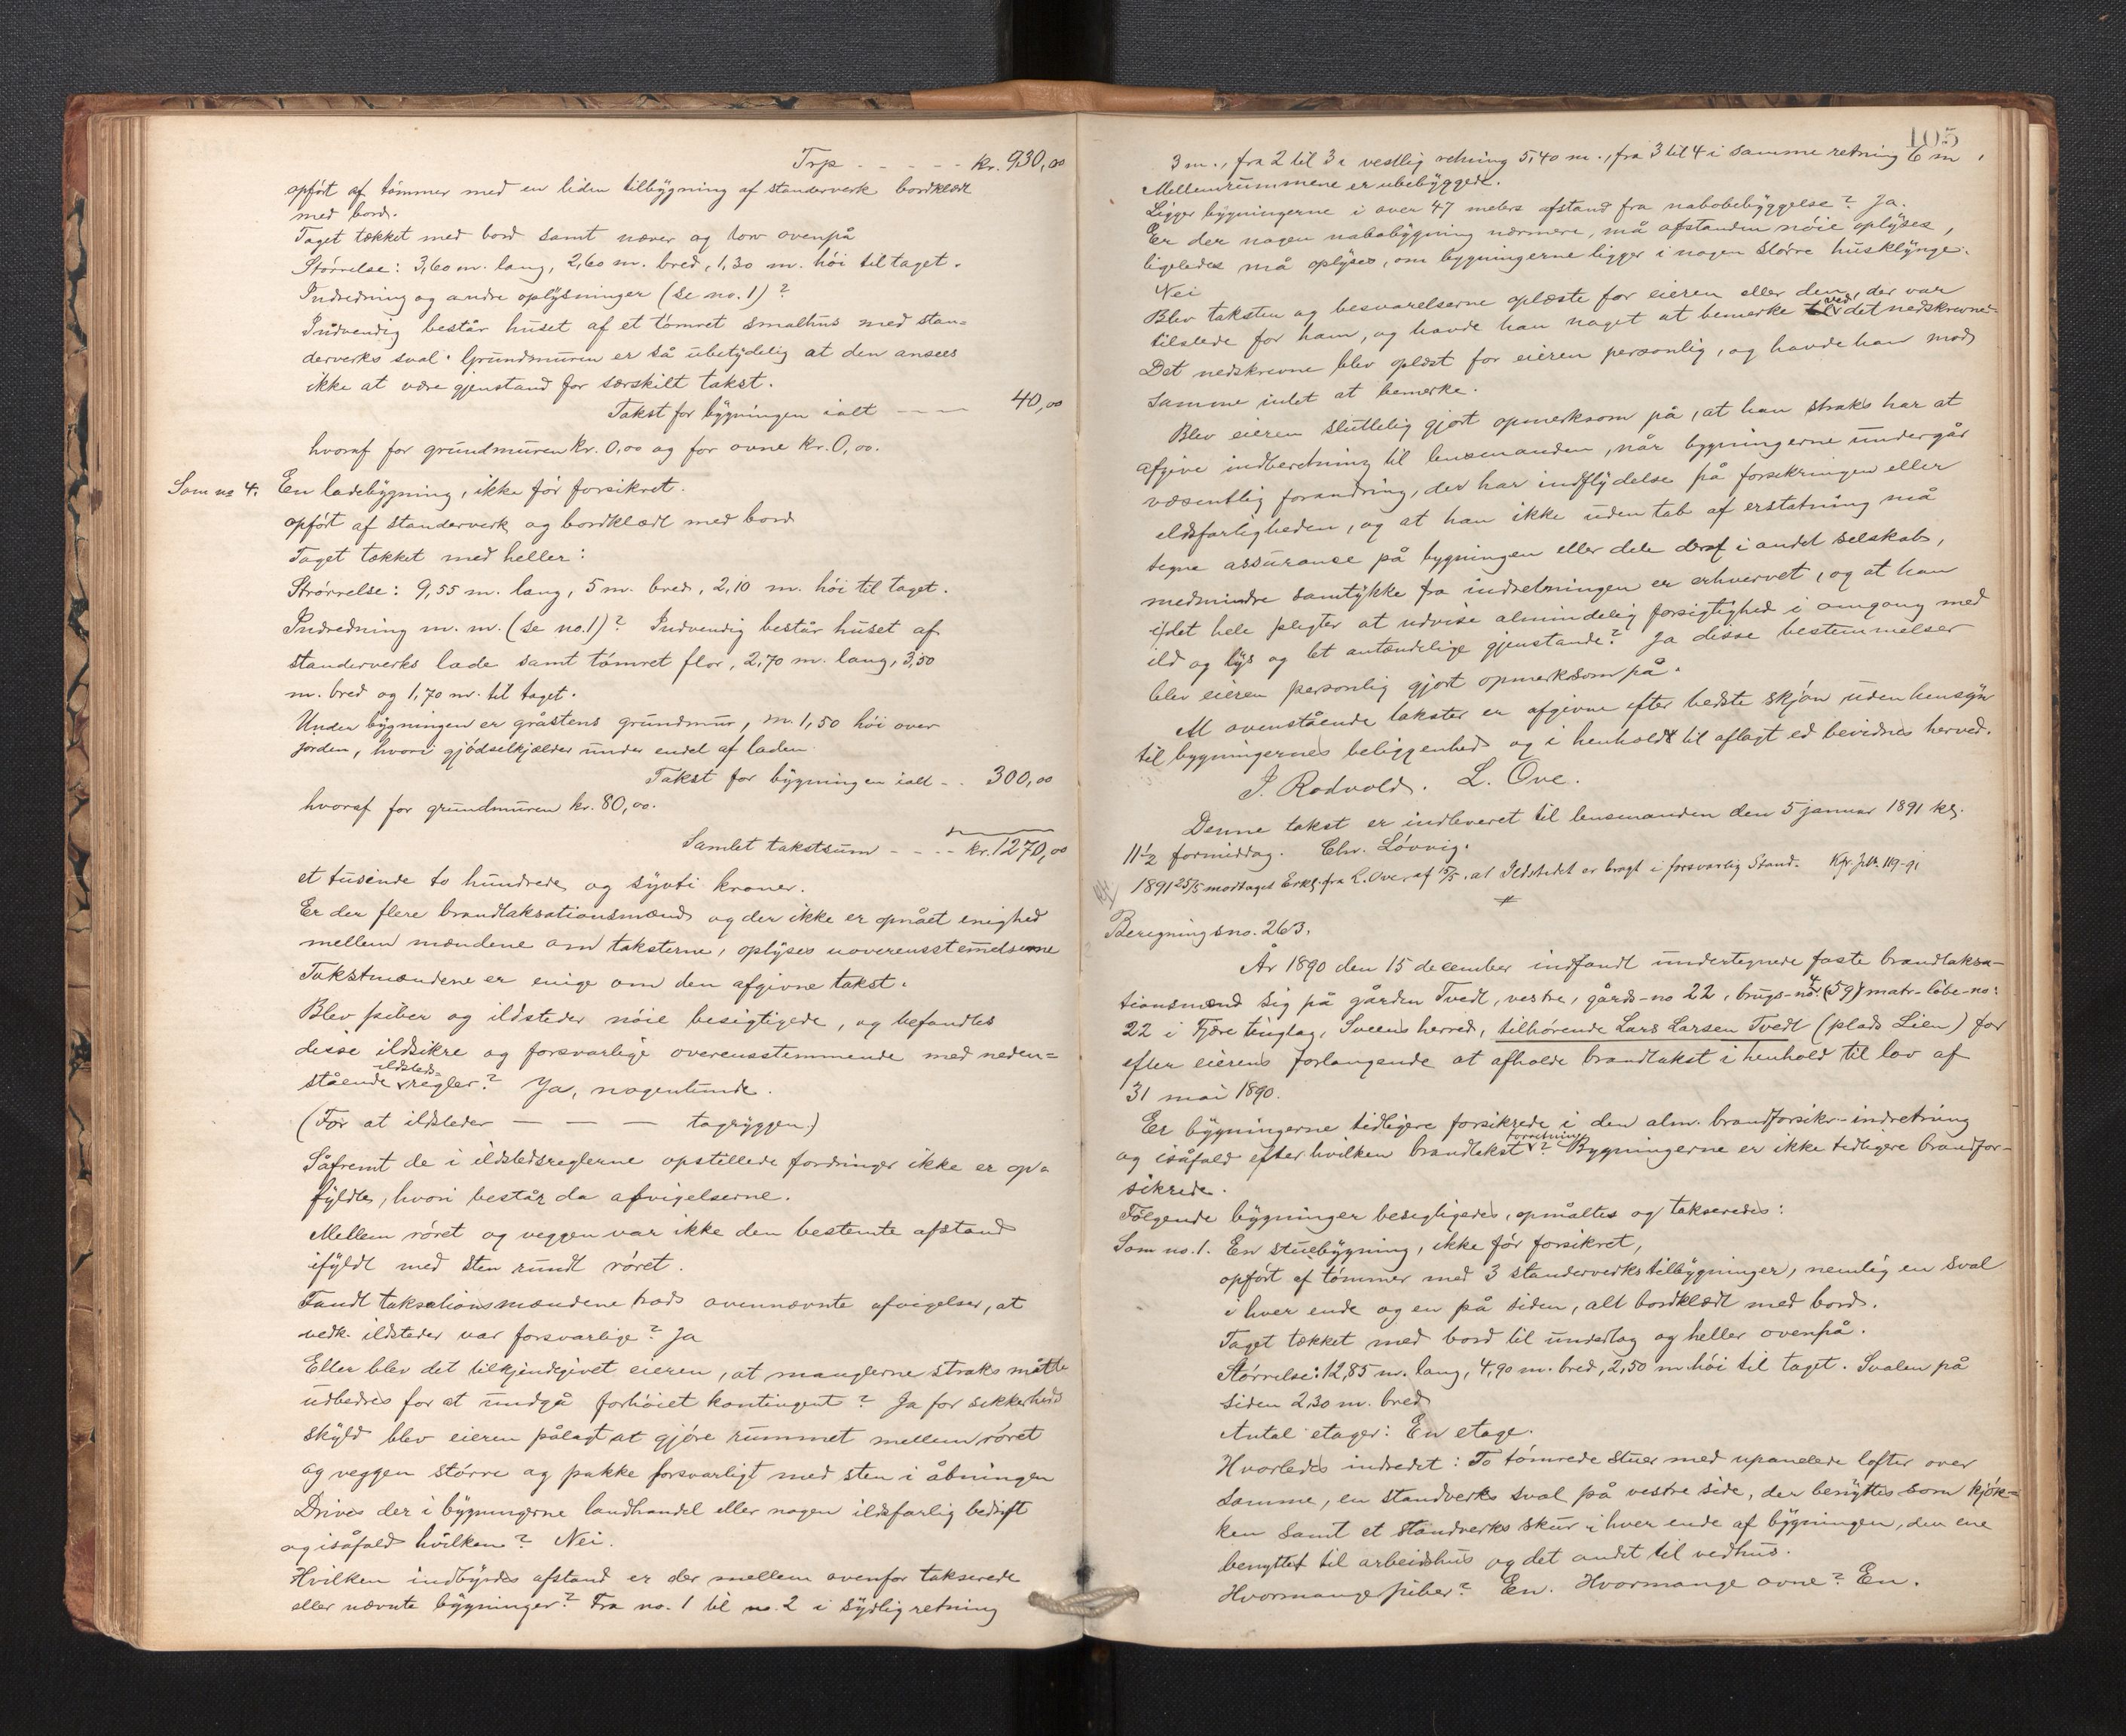 Trp - - - - - kr. 930,00
opført af tømmer med en liden tilbygning af standerverk bordklædt
med bord.
Taget tækket med bord samt næver og torv ovenpå
Størrelse: 3,60 m. lang, 2,60 m. bred, 1,30 m. høi til taget.
Indredning og andre oplysninger (se no. 1)?
Indvendig består huset af et tømret smalhus med stan=
derverks sval. Grundmuren er så ubetydelig at den ansees
ikke at være gjenstand for særskilt takst.
Takst for bygningen ialt - - - 40,00
hvoraf for grundmuren kr. 0,00 og for ovne kr. 0,00.
Som no 4. En ladebygning, ikke før forsikret.
opført af standerverk og bordklædt med bord
Taget tækket med heller:
Størrelse: 9,55 m. lang, 5 m. bred, 2,10 m. høi til taget.
Indredning m. m. (se no. 1)? Indvendig består huset af
standerverks lade samt tømret flor, 2,70 m. lang, 3,50
m. bred og 1,70 m. til taget.
Under bygningen er gråstens grundmur, m. 1,50 høi over
jorden, hvori gjødselkjælder under endel af laden.
Takst for bygningen ialt - - 300,00
hvoraf for grundmuren kr. 80,00.
Samlet takstsum - - - - kr. 1270,00
et tusinde to hundrede og sytti kroner.
Er der flere brandtaksationsmænd og der ikke er opnået enighed
mellem mændene om taksterne, oplyses uoverensstemelserne
Takstmændene er enige om den afgivne takst.
Blev piber og ildsteder nøie besigtigede, og befandtes
disse ildsikre og forsvarlige overensstemmende med neden=
stående ildsteds= regler? Ja, nogenlunde.
(For at ildsteder — — — tagryggen.)
Såfremt de i ildstedsreglerne opstillede fordringer ikke er op=
fyldte, hvori består da afvigelserne.
Mellem røret og veggen var ikke den bestemte afstand
ifyldt med sten rundt røret.
Fandt taksationsmændene trods ovennævnte afvigelser, at
vedk. ildsteder var forsvarlige? Ja
Eller blev det tilkjendegivet eieren, at manglerne straks måtte
udbedres for at undgå forhøiet kontingent? Ja for sikkerheds
skyld blev eieren pålagt at gjøre rummet mellem røret
og veggen større og pakke forsvarligt med sten i åbningen
Drives der i bygningerne landhandel eller nogen ildsfarlig bedrift
og isåfald hvilken? Nei.
Hvilken indbyrdes afstand er der mellem ovenfor takserede
eller nævnte bygninger? Fra no. 1 til no. 2 i sydlig retning
105
3 m., fra 2 til 3 i vestlig retning 5,40 m., fra 3 til 4 i samme retning 6 m,
Mellemrummene er ubebyggede.
Ligger bygningerne i over 47 meters afstand fra nabobebyggelse? Ja.
Er der nogen nabobygning nærmere, må afstanden nøie oplyses,
ligeledes må oplyses, om bygningerne ligger i nogen større husklynge.
Nei
Blev taksten og besvarelserne oplæste for eieren eller den, der var
tilstede for ham, og havde han noget at bemerke ved det nedskrevne=
Det nedskrevne blev oplæst for eieren personlig, og havde han mod
samme intet at bemerke.
Blev eieren sluttelig gjort opmerksom på, at han straks har at
afgive indberetning til lensmanden, når bygningerne undergår
væsentlig forandring, der har indflydelse på forsikringen eller
ildsfarligheden, og at han ikke uden tab af erstatning må
tegne assurance på bygningen eller dele deraf i andet selskab,
medmindre samtykke fra indretningen er erhvervet, og at han
idet hele pligter at udvise almindelig forsigtighed i omgang med
ild og lys og let antændelige gjenstande? Ja disse bestemmelser
blev eieren personlig gjort opmerksom på.
At ovenstående takster er afgivne efter bedste skjøn uden hensyn
til bygningernes beliggenhed og i henhold til aflagt ed bevidnes herved.
J. Rodvold. L. Ove.
Denne takst er indleveret til lensmanden den 5 januar 1891 kl.
11 1/2 formiddag. Chr. Løvvig.
1891 25/5 modtaget Erkl. fra L. Ove af 15/5 at Ildstedet er bragt i forsvarlig Stand. Kfr. jnl. 119-91
Beregningsno. 263.
År 1890 den 15 december indfandt undertegnede faste brandtaksa-
tionsmænd sig på gården Tvedt, vestre, gårds-no 22, brugs-no. 4 (59) matr-løbe-no:
22 i Fjære tinglag, Sveens herred, tilhørende Lars Larsen Tvedt (plads Lien) for
efter eierens forlangende at afholde brandtakst i henhold til lov af
31 mai 1890.
Er bygningerne tidligere forsikrede i den alm. brandforsikr.-indretning
og isåfald efter hvilken brandtakst forretning? Bygningerne er ikke tidligere brandfor-
sikrede.
Følgende bygninger besigtigedes, opmåltes og takseredes:
Som no. 1. En stuebygning, ikke før forsikret,
opført af tømmer med 3 standerverks tilbygninger, nemlig en sval
i hver ende og en på siden, alt bordklædt med bord.
Taget tækket med bord til underlag og heller ovenpå.
Størrelse: 12,85 m. lang, 4,90 m. bred, 2,50 m. høi til taget. Svalen på
siden 2,30 m. bred
Antal etager: En etage.
Hvorledes indredet: To tømrede stuer med upanelede lofter over
samme, en standverks sval på vestre side, der benyttes som kjøk=
ken samt et standverks skur i hver ende af bygningen, den ene
benyttet til arbeidshus og det andet til vedhus.
Hvormange piber? En. Hvormange ovne? En.